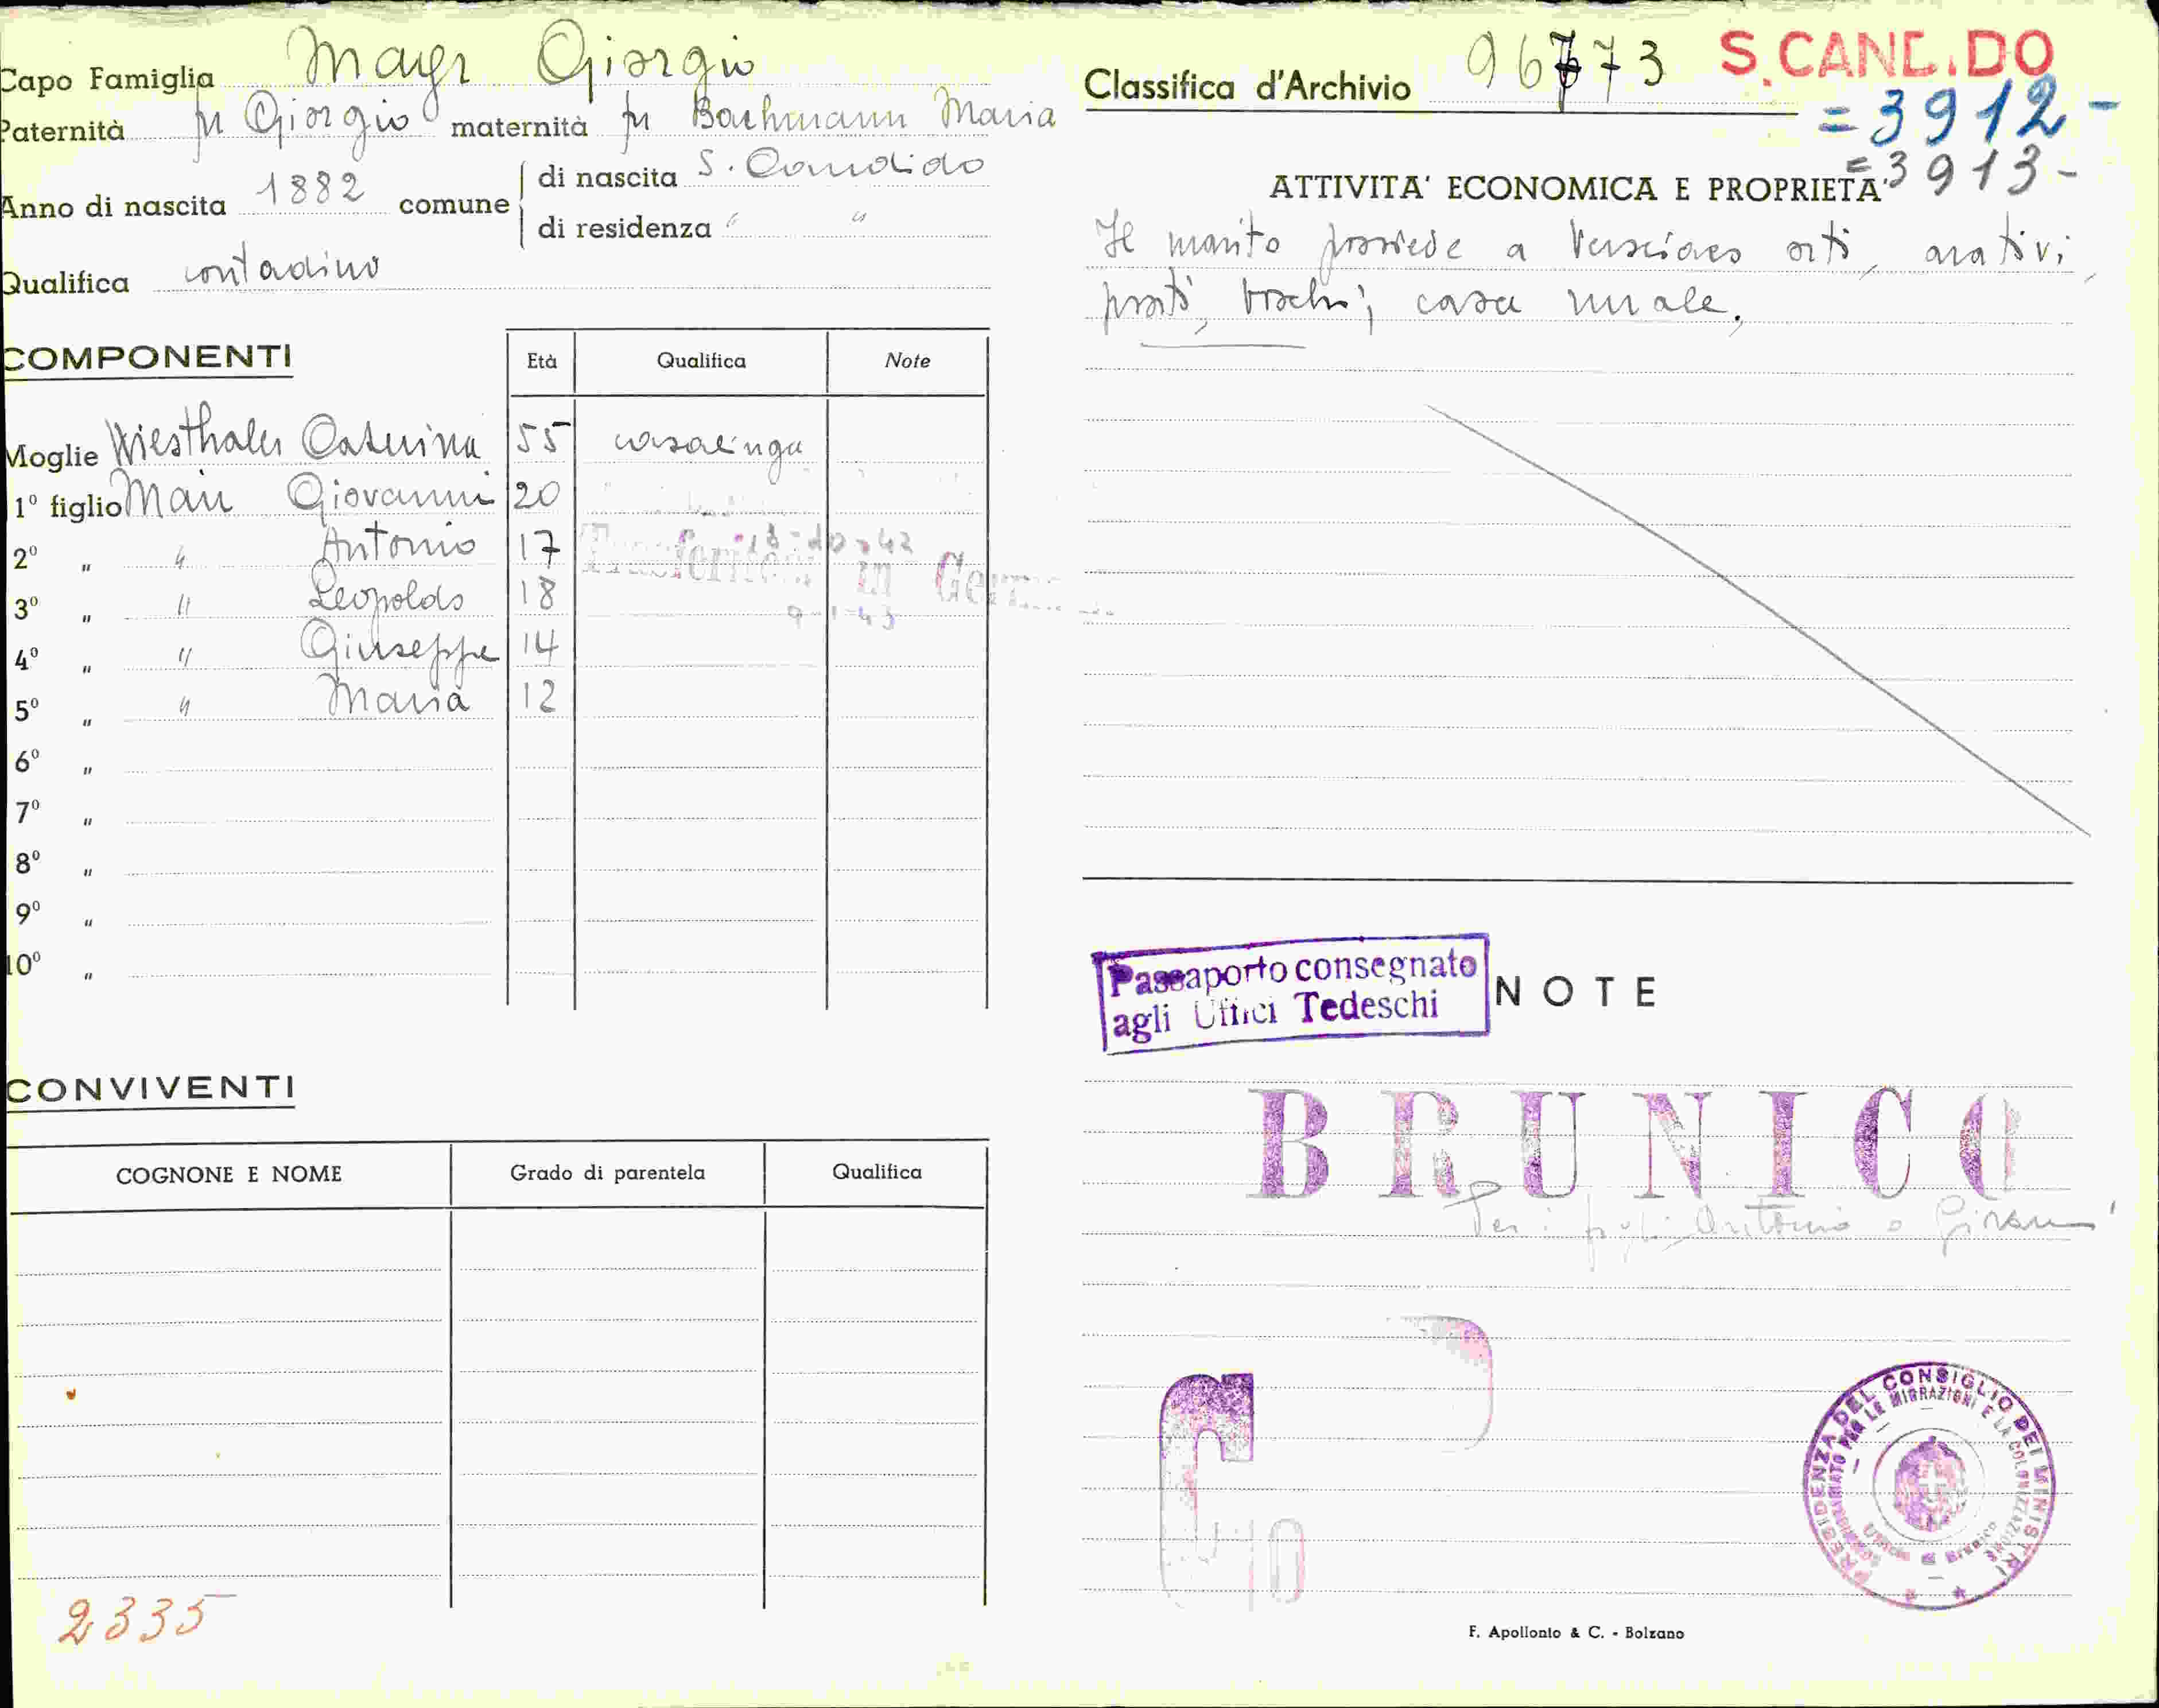 Capo Famiglia Mayr Giorgio
Paternità fu Giorgio maternità fu Bachmann Maria
Anno di nascita 1882 comune di nascita S. Candido
di residenza " "
Qualifica contadino
COMPONENTI Età Qualifica Note
Moglie Wiesthaler Caterina 55 casalinga
1º figlio Mair Giovanni 20
2º " " Antonio 17 13-10-42
Trasferito in Germ
3º " " Leopoldo 18 9-1-43
4º " " Giuseppe 14
5º " " Maria 12
6º "
7º "
8º "
9º "
10º "
CONVIVENTI
COGNONE E NOME Grado di parentela Qualifica
2335
Classifica d'Archivio 96773 S.CANDIDO
=3912-
=3913-
ATTIVITA' ECONOMICA E PROPRIETA'
Il marito possiede a Versciaco orti, arativi,
prati, boschi; casa rurale.
Passaporto consegnato
agli Uffici Tedeschi
NOTE
BRUNICO
Per i figli Antonio e Giovanni
PRESIDENZA DEL CONSIGLIO DEI MINISTRI
COMMISSARIATO PER LE MIGRAZIONI E LA COLONIZZAZIONE
Ufficio di Brunico
F. Apollonio & C. - Bolzano